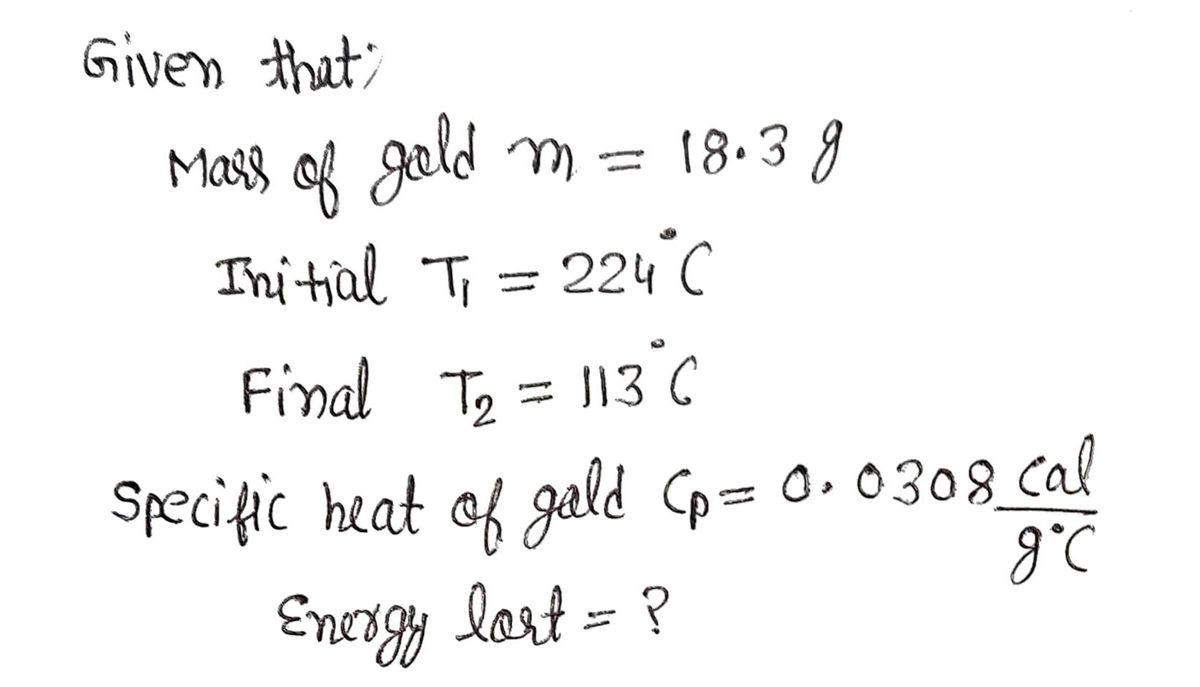 Given that;
Mass of gold m = 18.3 g
Initial T₁ = 224°C
Final T₂ = 113°C
Specific heat of gold Cp = 0.0308 cal/g°C
Energy lost = ?